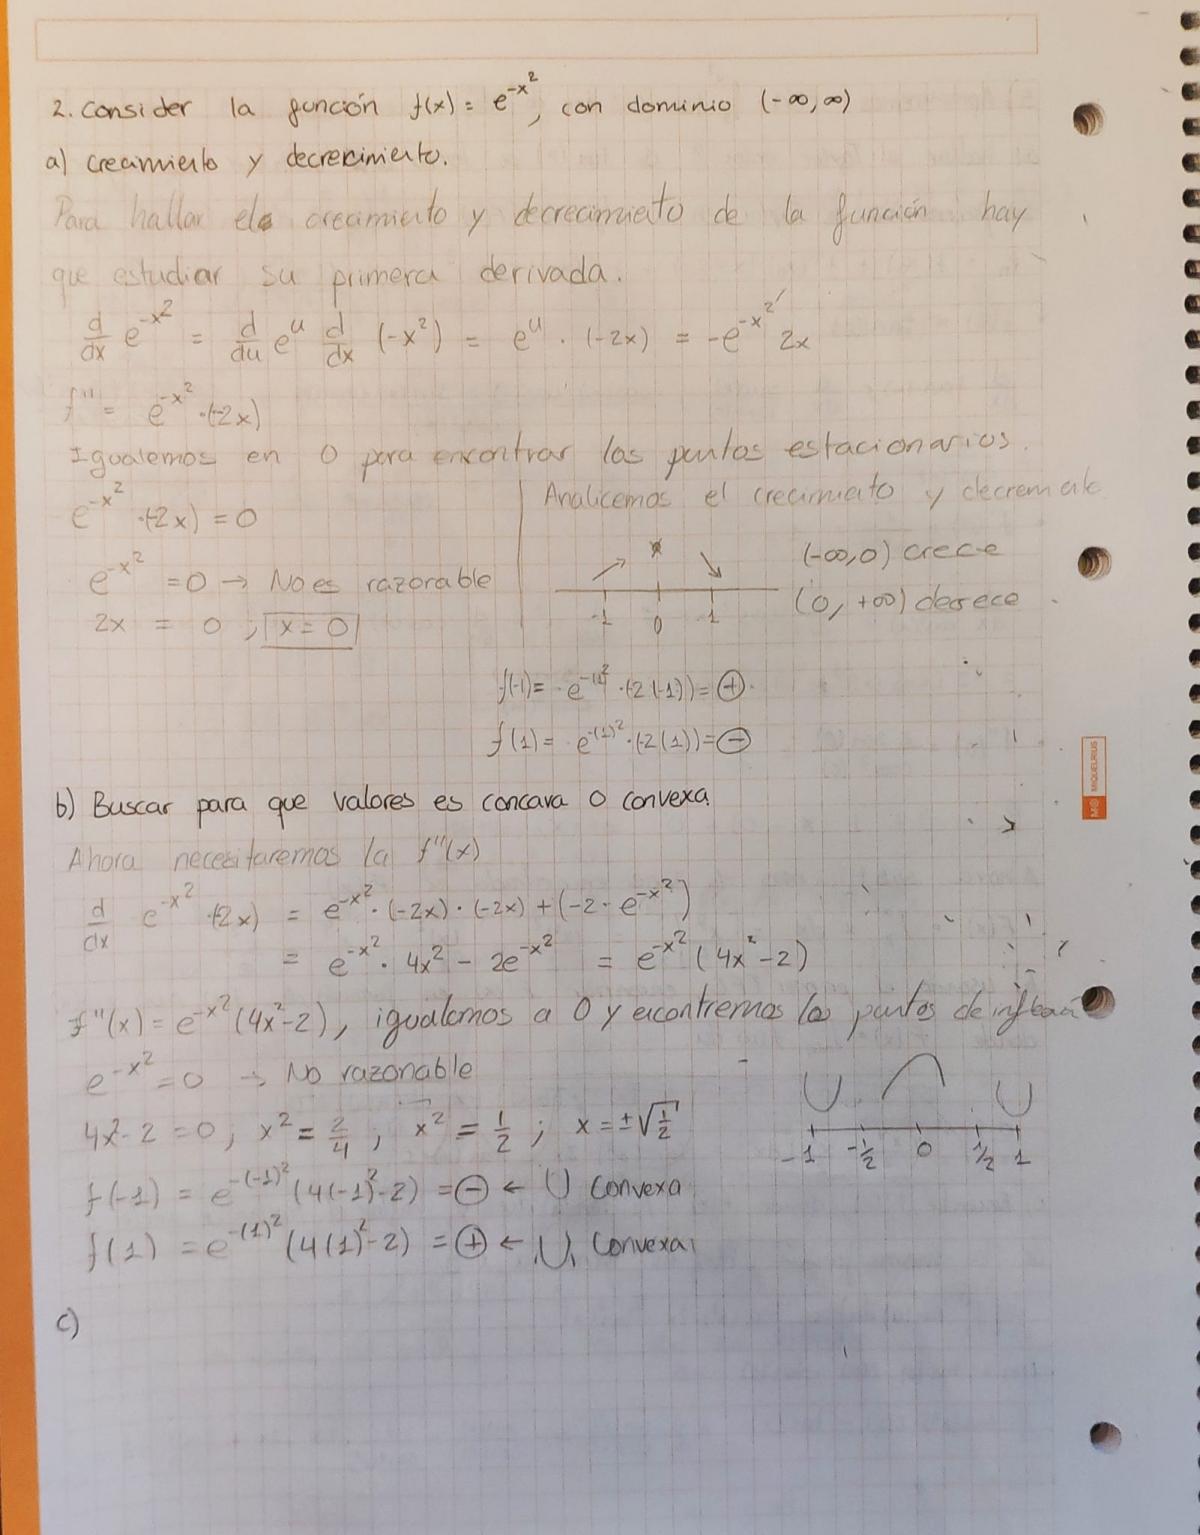 2. Consider la función f(x) = e^{-x^2}, con dominio (-∞, ∞)
a) crecimiento y decrecimiento.
Para hallar el crecimiento y decrecimiento de la función hay
que estudiar su primera derivada.
d/dx e^{-x^2} = d/du e^u d/dx (-x^2) = e^u · (-2x) = -e^{-x^2} 2x
f'' = e^{-x^2} · (-2x)
Igualemos en 0 para encontrar los puntos estacionarios.
e^{-x^2} · (-2x) = 0
e^{-x^2} = 0 → No es razonable
2x = 0 ; x = 0
Analicemos el crecimiento y
(-∞, 0) crece
(0, +∞) decrece
-1 0 1
f(-1) = · e^{-(1)^2} · (-2(-1)) = +
f(1) = · e^{-(1)^2} · (-2(1)) = -
b) Buscar para que valores es concava o convexa.
Ahora necesitaremos la f''(x)
d/dx e^{-x^2} · (-2x) = e^{-x^2} · (-2x) · (-2x) + (-2 · e^{-x^2})
= e^{-x^2} · 4x^2 - 2e^{-x^2} = e^{-x^2} (4x^2 - 2)
f''(x) = e^{-x^2} (4x^2 - 2), igualamos a 0 y encontremos los puntos de
e^{-x^2} = 0 → No razonable
4x^2 - 2 = 0 ; x^2 = 2/4 ; x^2 = 1/2 ; x = ±√(1/2)
-1 -1/2 0 1/2 1
f(-1) = e^{-(-1)^2} (4(-1)^2 - 2) = - ← ∪ Convexa
f(1) = e^{-(1)^2} (4(1)^2 - 2) = + ← ∪ Convexa
c)
MIQUELRIUS